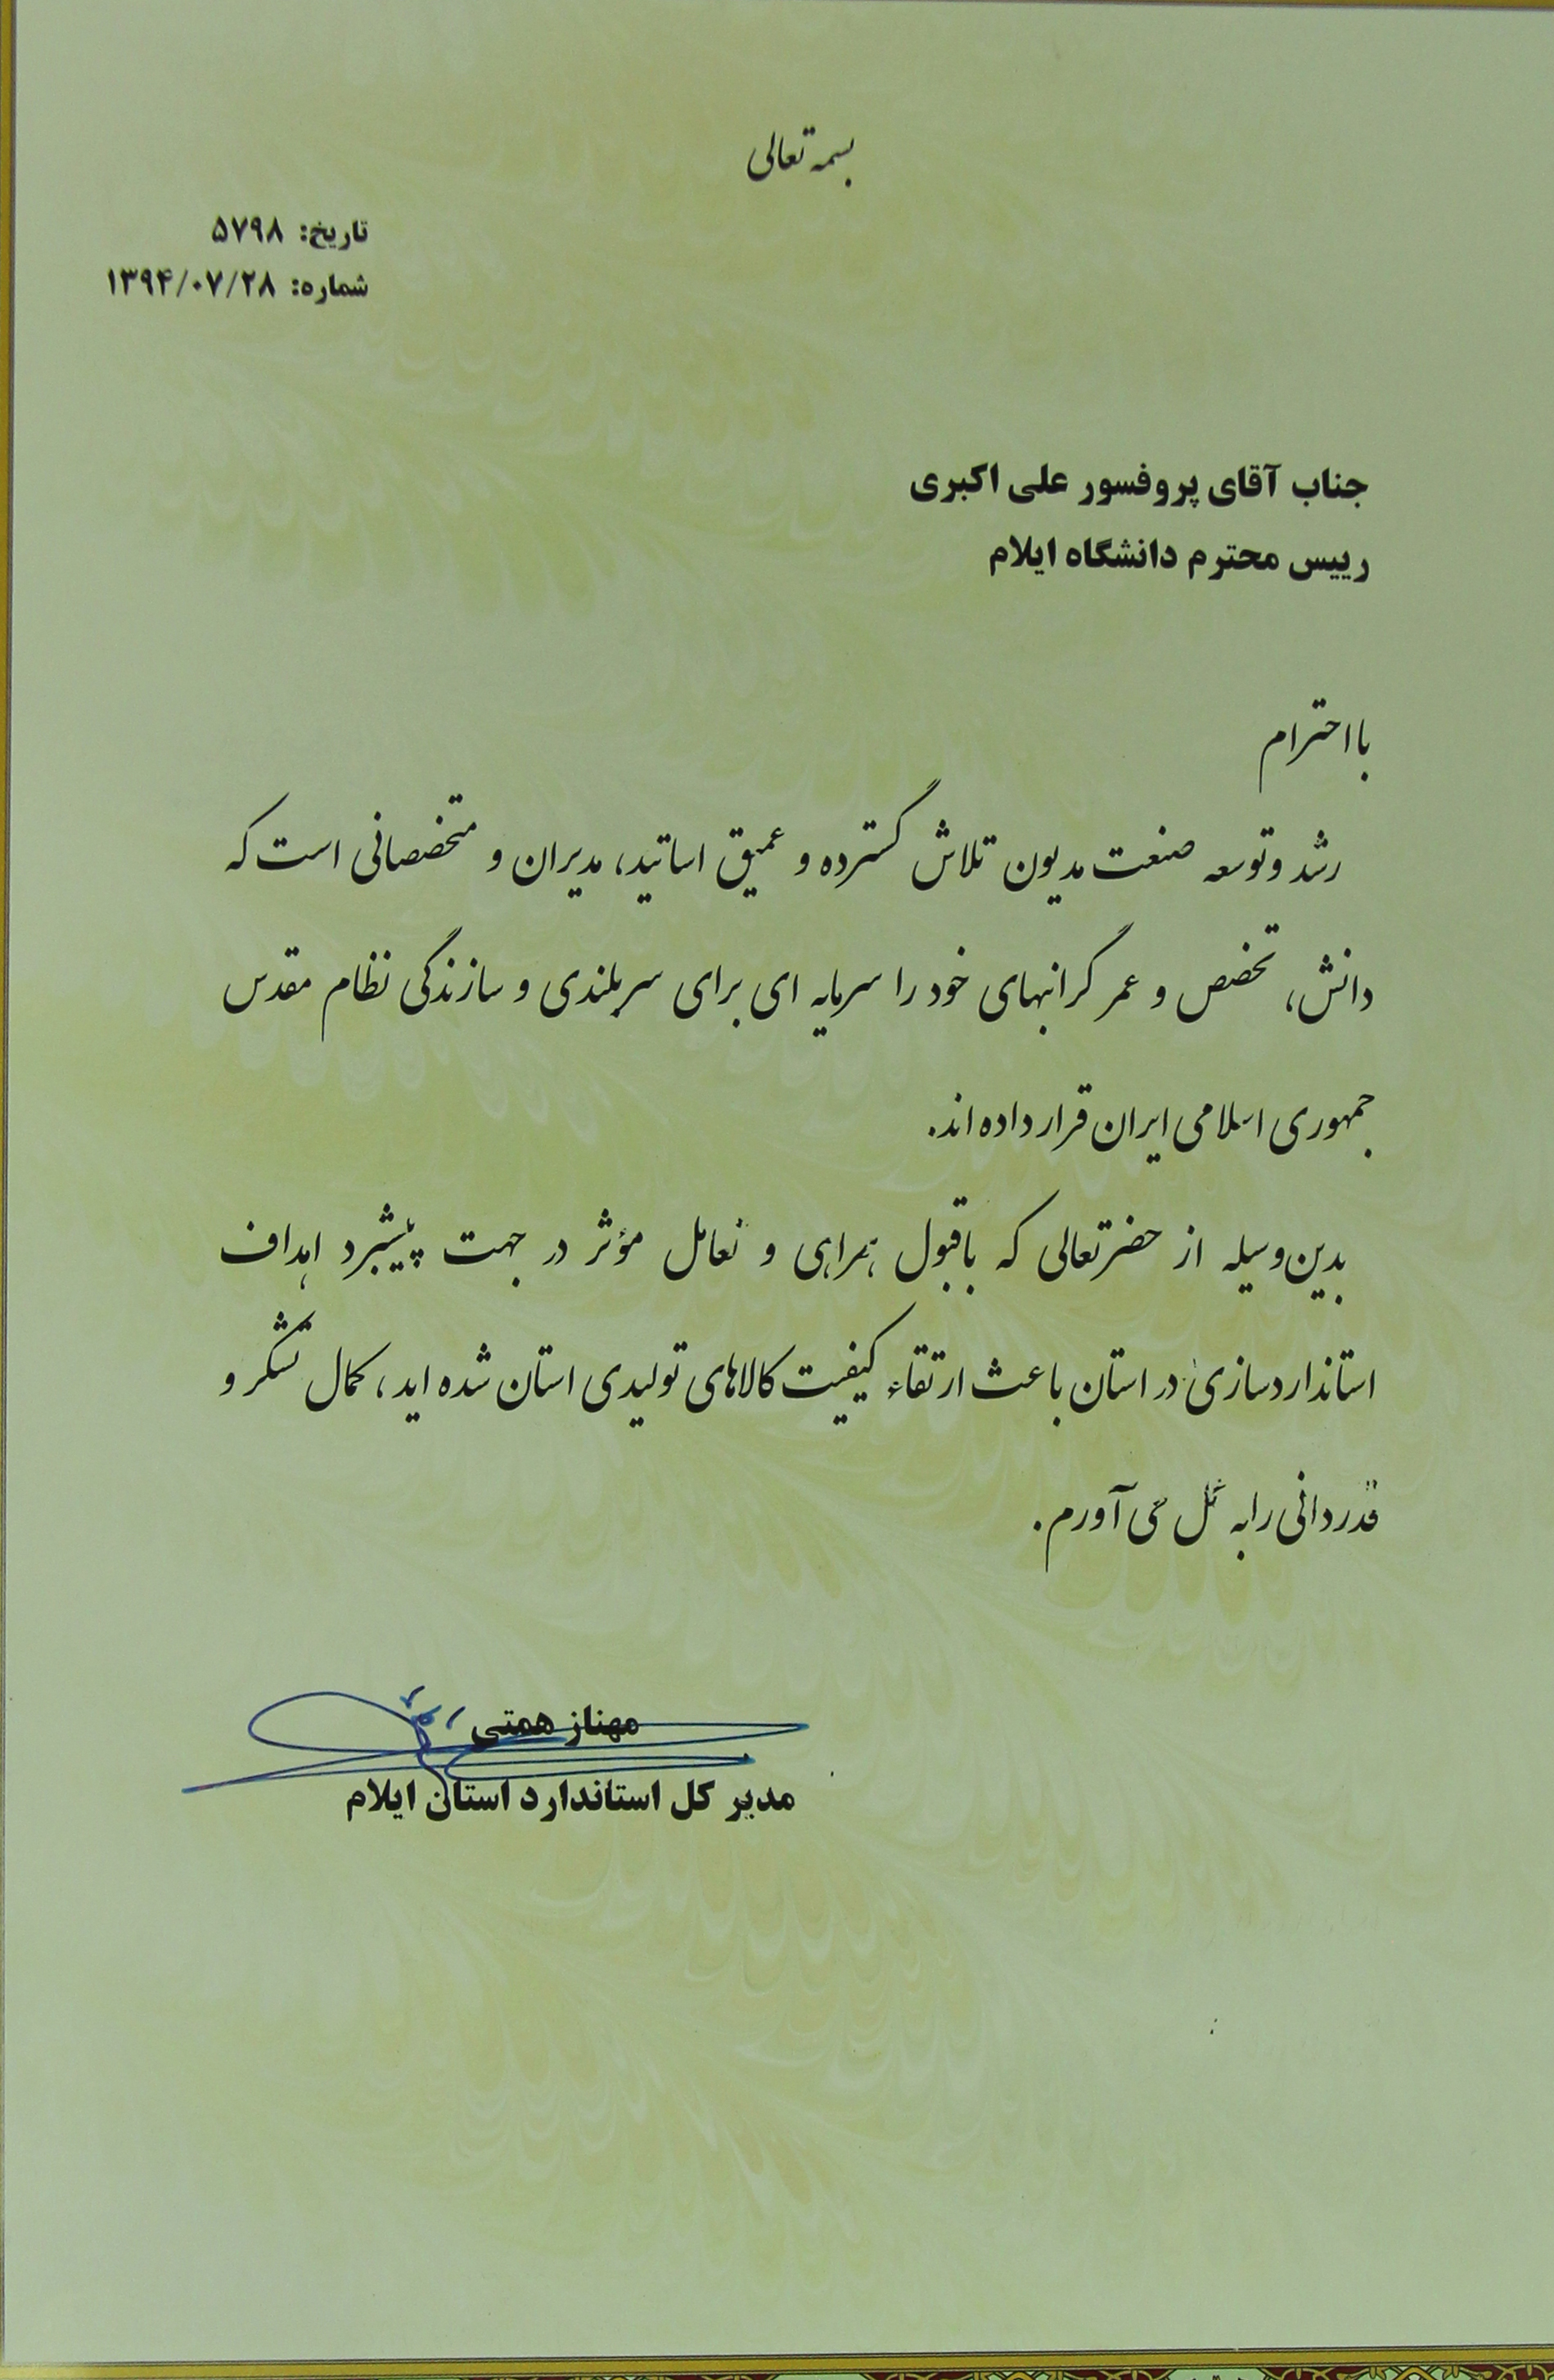 بسمه تعالی
تاریخ: ۵۷۹۸
شماره: ۱۳۹۴/۰۷/۲۸
جناب آقای پروفسور علی اکبری
رییس محترم دانشگاه ایلام
با احترام
رشد و توسعه صنعت مدیون تلاش گسترده و عمیق اساتید، مدیران و متخصصانی است که
دانش، تخصص و عمر گرانبهای خود را سرمایه ای برای سربلندی و سازندگی نظام مقدس
جمهوری اسلامی ایران قرار داده اند.
بدین‌وسیله از حضرتعالی که با قبول همراهی و تعامل مؤثر در جهت پیشبرد اهداف
استانداردسازی در استان باعث ارتقاء کیفیت کالاهای تولیدی استان شده اید، کمال تشکر و
قدردانی را به عمل می آورم.
مهناز همتی
مدیر کل استاندارد استان ایلام